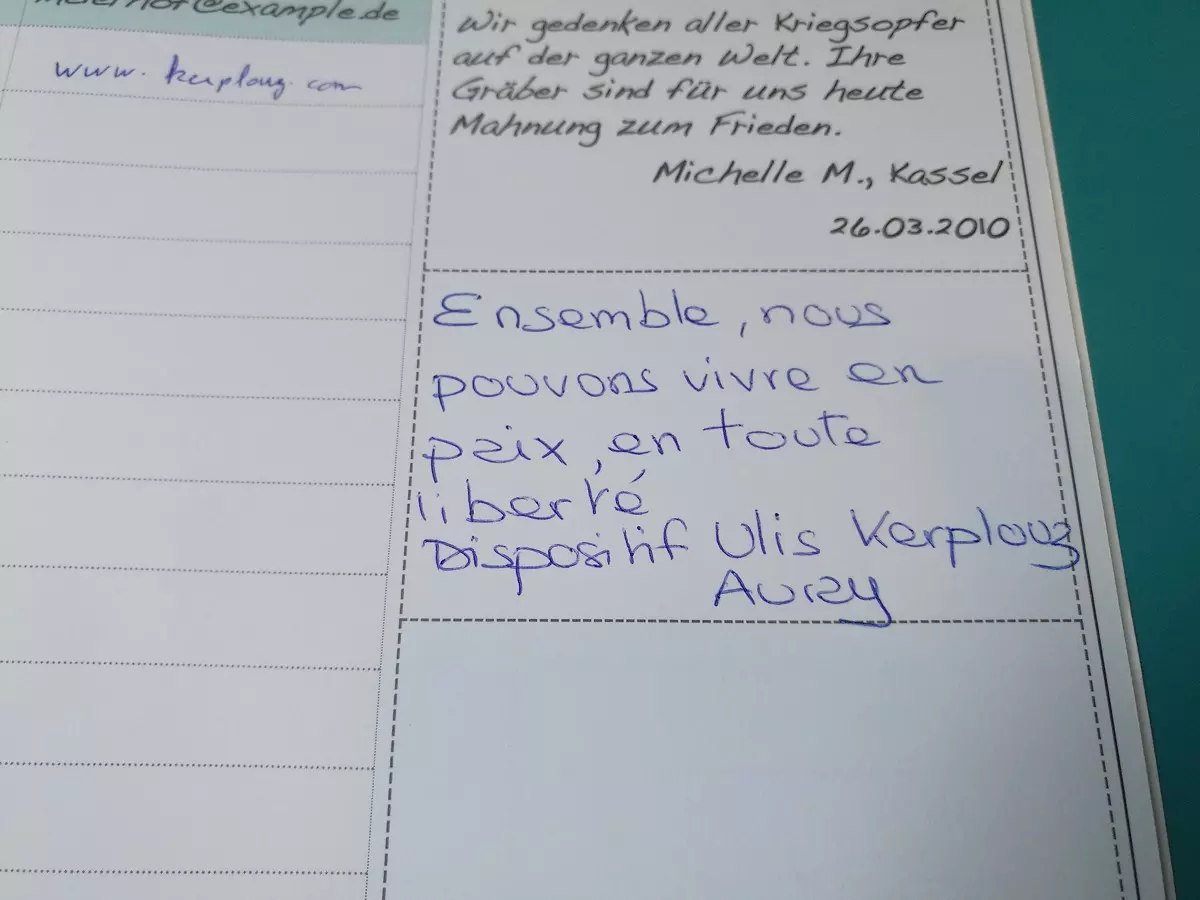 @example.de
www.kerplouz.com
Wir gedenken aller Kriegsopfer
auf der ganzen Welt. Ihre
Gräber sind für uns heute
Mahnung zum Frieden.
Michelle M., Kassel
26.03.2010
Ensemble, nous
pouvons vivre en
paix, en toute
liberté
Dispositif Ulis Kerplouz
Auray